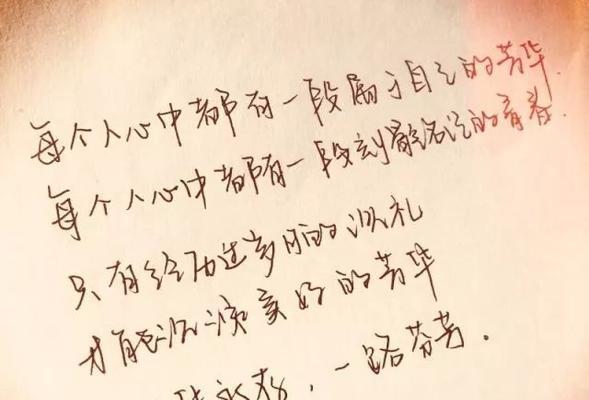 每个人心中都有一段属于自己的芳华.
每个人心中都有一段刻骨铭记的青春.
只有经历过岁月的洗礼
才能沉淀美好的芳华
华永存，一路芬芳.